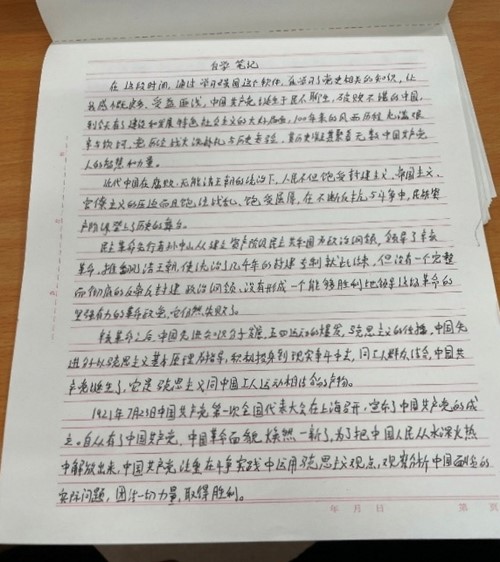 自学笔记
在这段时间,通过学习强国这个软件,我学习了党史相关的知识,让
我感慨更多、受益匪浅,中国共产党诞生于民不聊生,破败不堪的中国,
到今天有了建设和发展特色社会主义的大好局面,100年来的风雨历程充满艰
辛与坎坷,党历经战火洗礼与历史考验,其历史凝聚着无数中国共产党
人的智慧和力量。
近代中国在腐败、无能清王朝的统治下,人民不但饱受封建主义、帝国主义、
官僚主义的压迫而且饱经战乱、饱受屈辱,在不断反抗与斗争中,民族资
产阶级登上了历史的舞台。
民主革命先行者孙中山从建立资产阶级民主共和国为政治纲领,领导了辛亥
革命,推翻了清王朝,使统治了几千年的封建专制就此结束,但没有一个完整
而彻底的反帝反封建政治纲领、没有形成一个能够胜利地领导这场革命的
坚强有力的革命政党,它仍然失败了。
辛亥革命之后,中国先进分子五四运动的爆发,马克思主义的传播,中国先
进分子以马克思主义基本原理为指导,积极投身到现实斗争中去,同工人群众结合,中国共
产党诞生了,它是马克思主义同中国工人运动相结合的产物。
1921年7月23日中国共产党第一次全国代表大会在上海召开,宣布了中国共产党的成
立。自从有了中国共产党,中国革命面貌焕然一新了,为了把中国人民从水深火热
中解放出来,中国共产党注重在斗争实践中运用马克思主义观点,观察分析中国面临的
实际问题,团结一切力量,取得胜利。
年 月 日
第 页